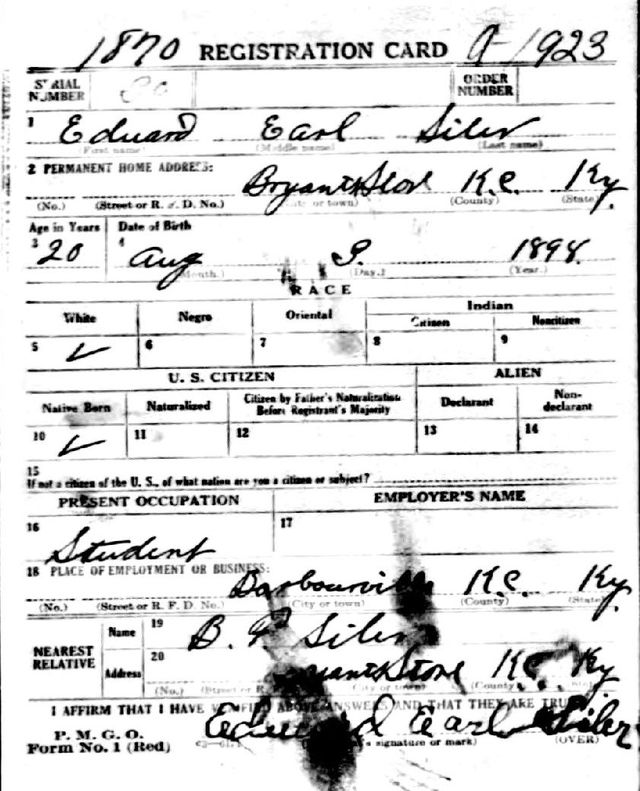 1870 REGISTRATION CARD A-1923
SERIAL NUMBER ORDER NUMBER
1 Edward Earl Siler
(First name) (Middle name) (Last name)
2 PERMANENT HOME ADDRESS:
Bryants Store K.C. Ky.
(No.) (Street or R. F. D. No.) (City or town) (County) (State)
Age in Years Date of Birth
3 20 4 Aug 9. 1898.
(Month.) (Day.) (Year.)
RACE
White Negro Oriental Indian
Citizen Noncitizen
5 ✓ 6 7 8 9
U. S. CITIZEN ALIEN
Native Born Naturalized Citizen by Father's Naturalization Before Registrant's Majority Declarant Non-declarant
10 ✓ 11 12 13 14
15
If not a citizen of the U. S., of what nation are you a citizen or subject?
PRESENT OCCUPATION EMPLOYER'S NAME
16 Student 17
18 PLACE OF EMPLOYMENT OR BUSINESS:
Barbourville K.C. Ky.
(No.) (Street or R. F. D. No.) (City or town) (County) (State)
NEAREST RELATIVE Name 19 B. F. Siler
Address 20 Bryants Store K.C. Ky
(No.) (City or town) (County)
I AFFIRM THAT I HAVE VERIFIED ABOVE ANSWERS AND THAT THEY ARE TRUE
P. M. G. O.
Form No. 1 (Red) Edward Earl Siler
(Registrant's signature or mark) (OVER)